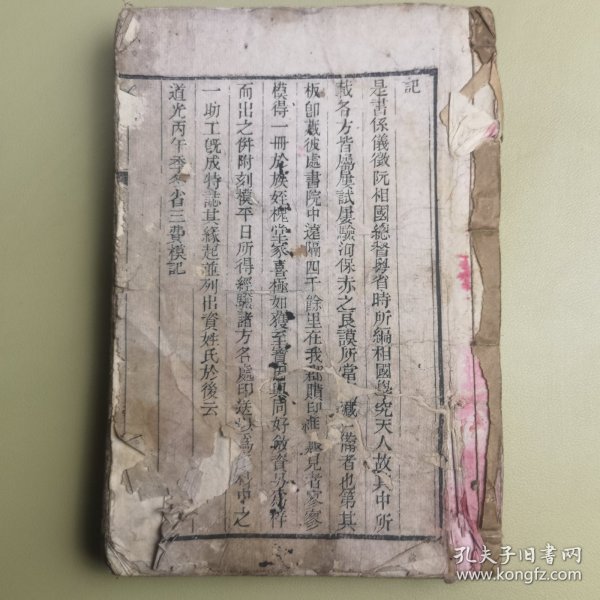 記
是書係儀徵阮相國總督粵省時所編相國學究天人故其中所
載各方皆屬屢試屢驗洵保赤之良謨所當 藏 備者也第其
板卽藏彼處書院中遠隔四千餘里在我 購印維 見者寥寥
模得一冊於族姪槐堂家喜極如獲至寶 與同好斂資 梓
而出之倂附刻模平日所得經驗諸方名處印送 中之
一助工旣成特誌其緣起並列出資姓氏於後云
道光丙午 省三費模記
孔夫子旧书网
www.kongfz.com